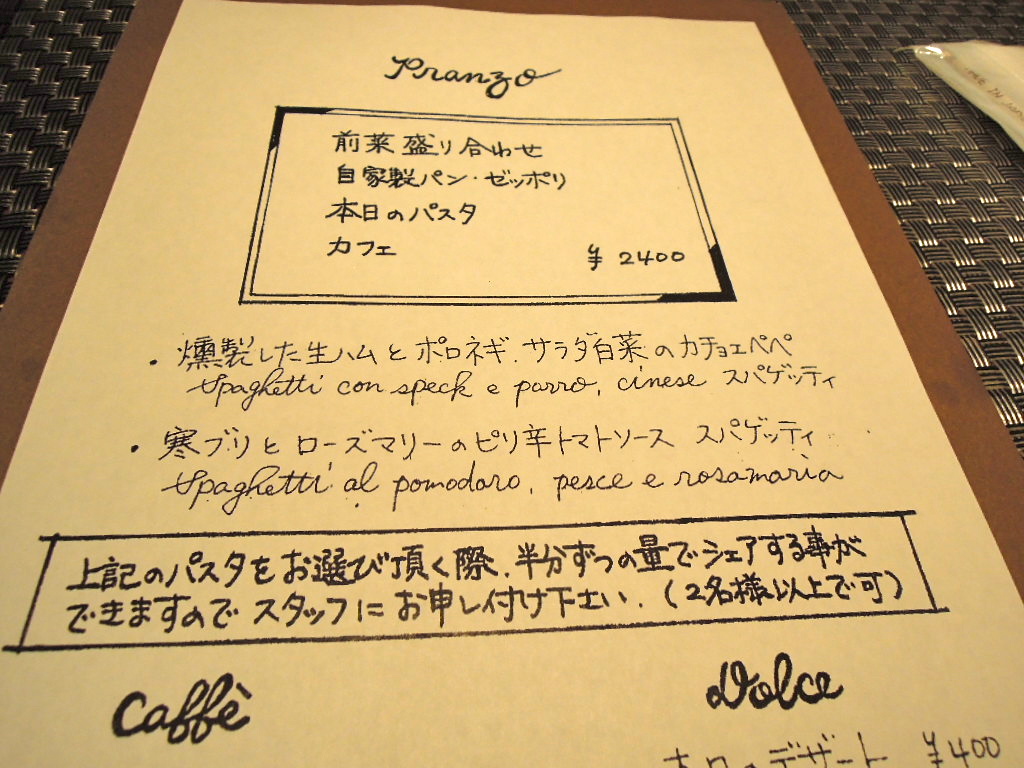 Pranzo
前菜盛り合わせ
自家製パン・ゼッポリ
本日のパスタ
カフェ
¥ 2400
・燻製した生ハムとポロネギ、サラダ白菜のカチョエペペ
Spaghetti con speck e parro, cinese スパゲッティ
・寒ブリとローズマリーのピリ辛トマトソース スパゲッティ
Spaghetti al pomodoro, pesce e rosamaria
上記のパスタをお選び頂く際、半分ずつの量でシェアする事が
できますのでスタッフにお申し付け下さい。(2名様以上で可)
Caffè
Dolce
本日のデザート ¥400